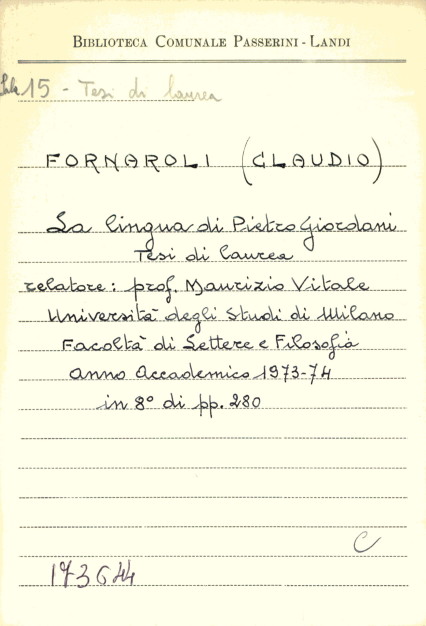 BIBLIOTECA COMUNALE PASSERINI - LANDI
Sala 15 - Tesi di laurea
FORNAROLI (CLAUDIO)
La lingua di Pietro Giordani
Tesi di laurea
relatore: prof. Maurizio Vitale
Università degli Studi di Milano
Facoltà di Lettere e Filosofia
Anno Accademico 1973-74
in 8° di pp. 280
C
173644